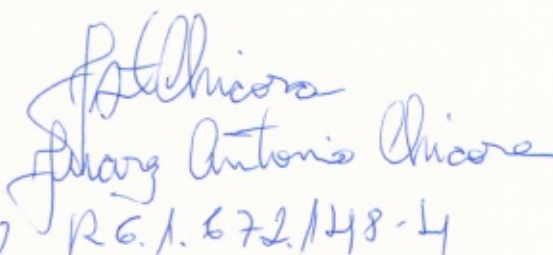 Chicora
Juarez Antonio Chicora
RG.1.672.148-4